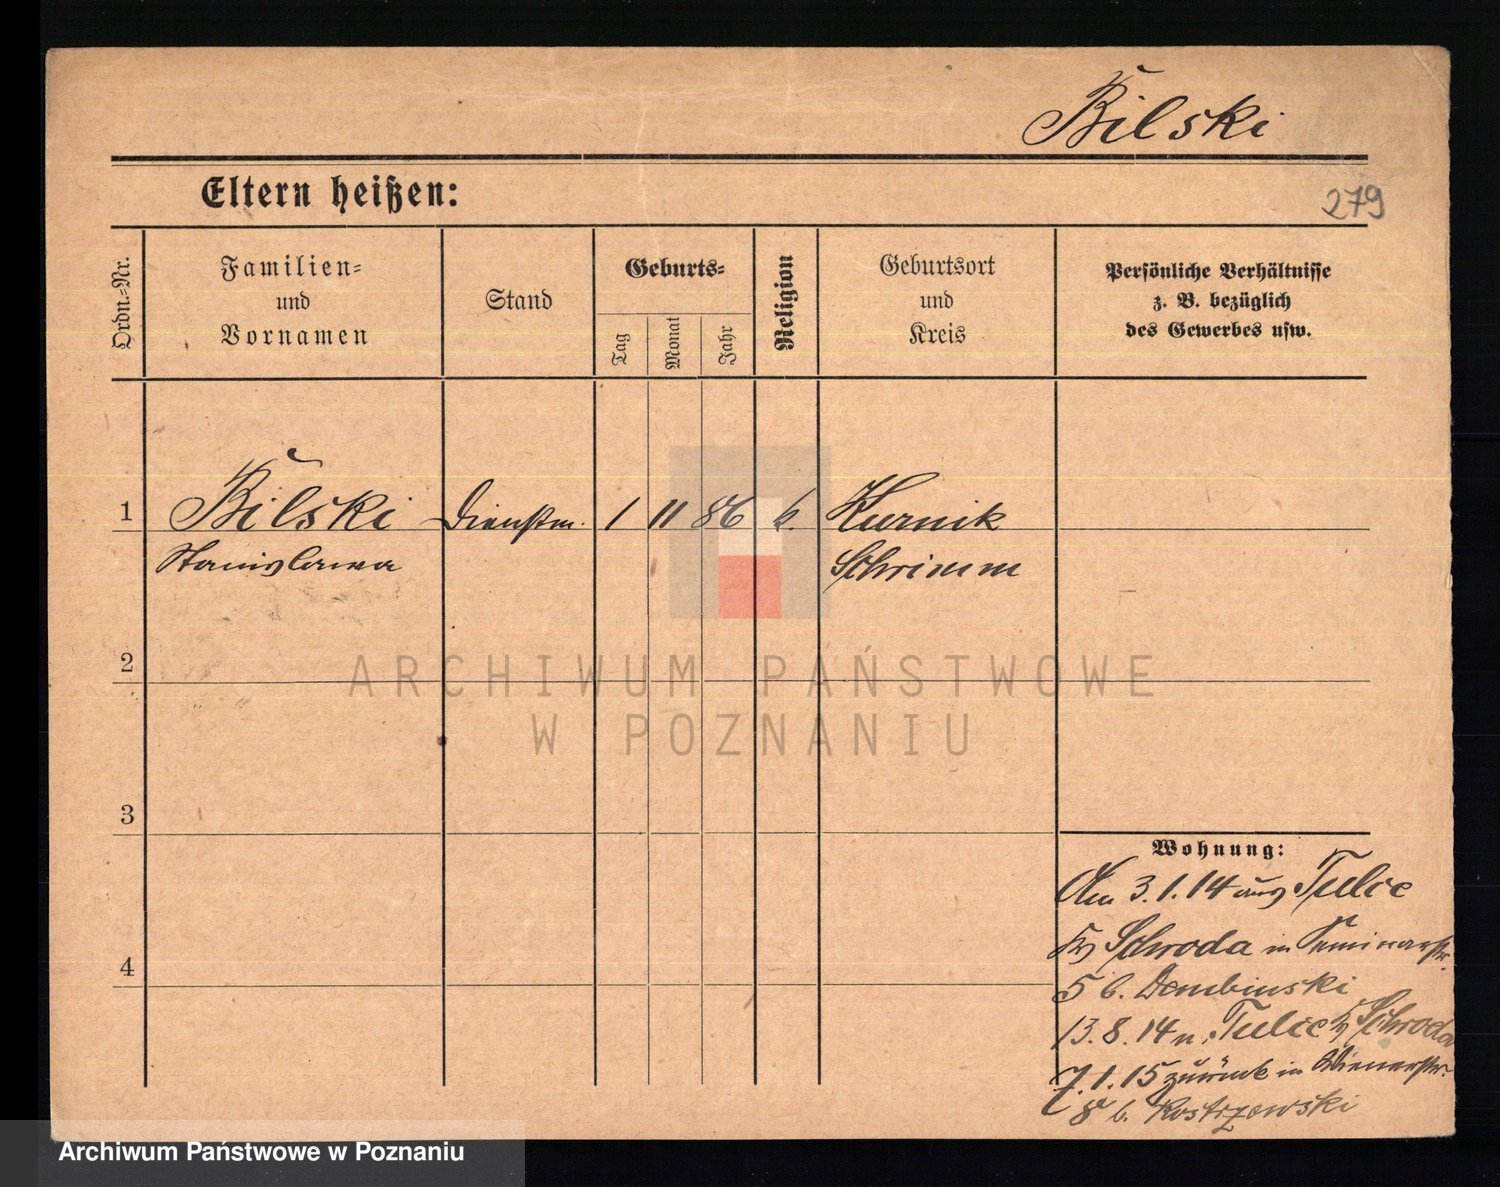 Bilski
Eltern heißen:
279
Ordn.-Nr.
Familien-
und
Vornamen
Stand
Geburts-
Tag
Monat
Jahr
Religion
Geburtsort
und
Kreis
Persönliche Verhältnisse
z. B. bezüglich
des Gewerbes usw.
1 Bilski Dienstm. 1 11 86 k. Kurnik
Stanislawa Schrimm
2
ARCHIWUM PAŃSTWOWE
W POZNANIU
3
Wohnung:
Am 3.1.14 aus Tulce
Kr Schroda in Seminarstr.
4
5 b. Dembinski
13.8.14 n. Tulce Kr Schroda
7.1.15 zurück in Wienerstr.
8 b. Kostrzewski
Archiwum Państwowe w Poznaniu